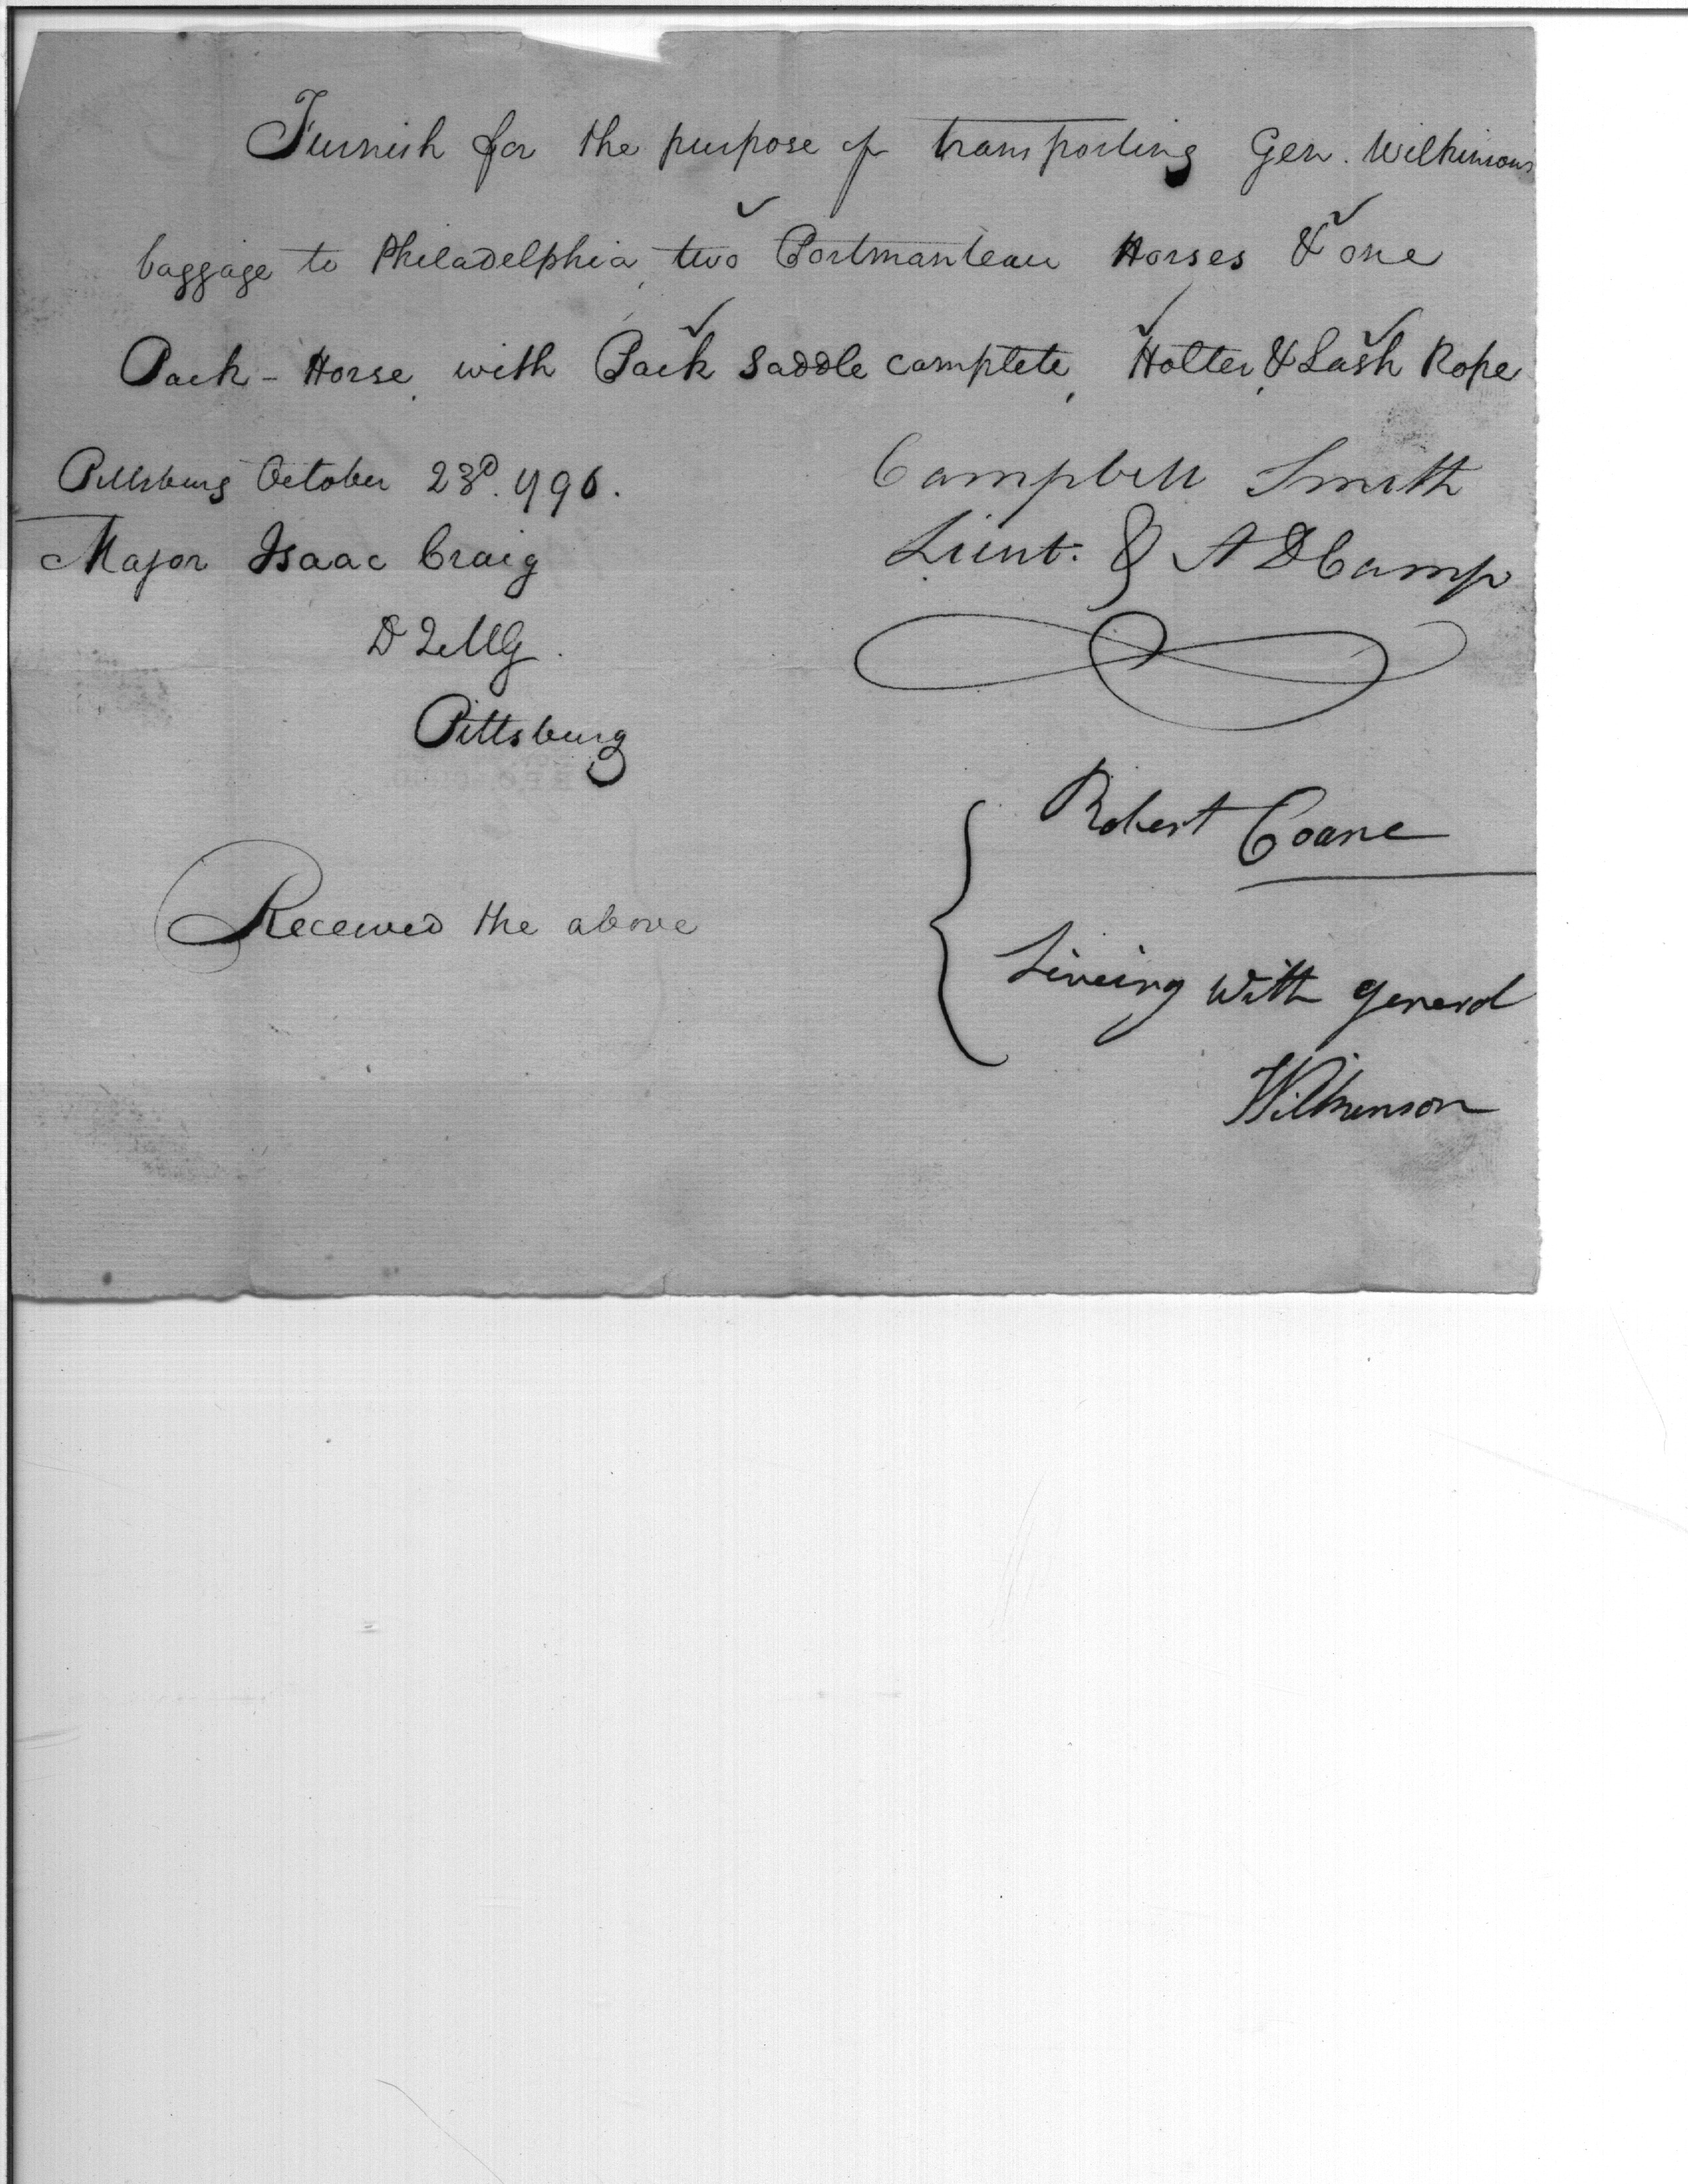 Furnish for the purpose of transporting Gen. Wilkinsons
baggage to Philadelphia, two Portmanteau Horses & one
Pack-Horse, with Pack Saddle complete, Holter, & Lash Rope
Pittsburg October 23d. 1796.
Campbell Smith
Lieut. & A D Camp
Major Isaac Craig
D Q M G.
Pittsburg
Received the above
Robert Coane
Liveing With general
Wilkinson